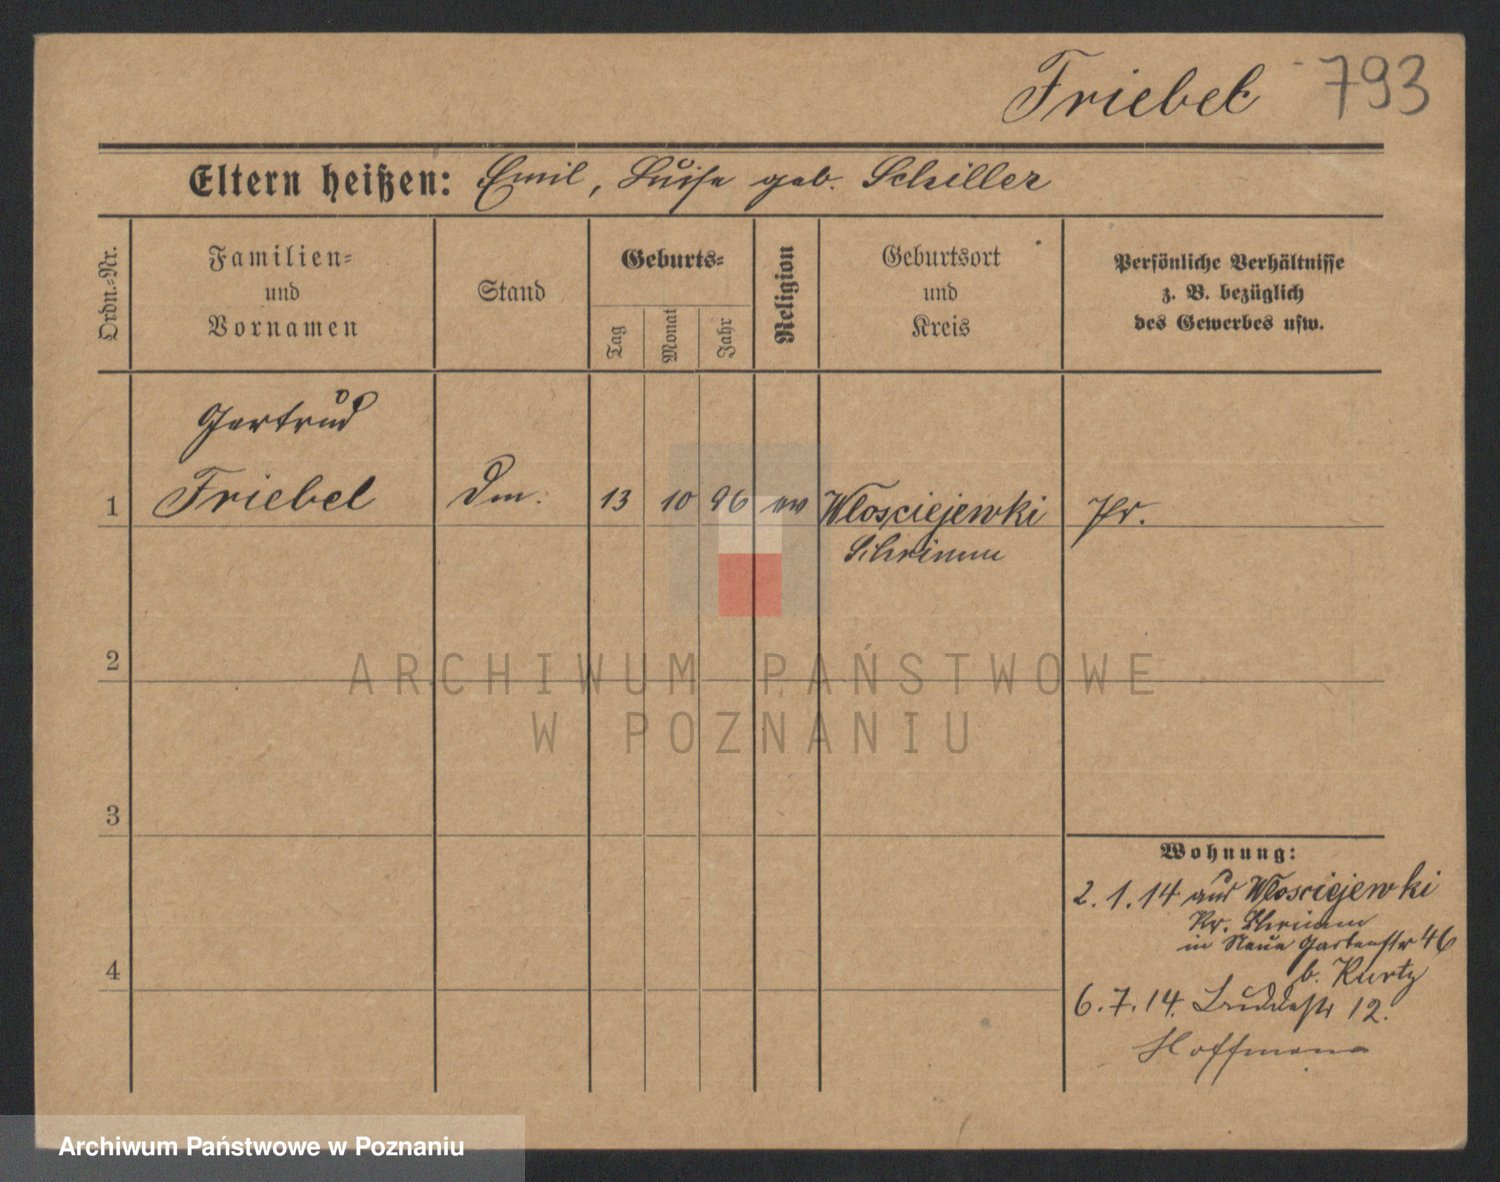 Friebel 793
Eltern heißen: Emil, Luise geb. Schiller
Ordn.-Nr.
Familien-
und
Vornamen
Stand
Geburts-
Tag
Monat
Jahr
Religion
Geburtsort
und
Kreis
Persönliche Verhältnisse
z. B. bezüglich
des Gewerbes usw.
Gertrud
1 Friebel 13 10 96 ev Wlosciejewki Pr.
Schrimm
2
3
4
Wohnung:
2.1.14 aus Wlosciejewki
Kr. Schrimm
in Neue Gartenstr 46
b. Kurtz
6.7.14. 12.
Hoffmann
ARCHIWUM PAŃSTWOWE
W POZNANIU
Archiwum Państwowe w Poznaniu